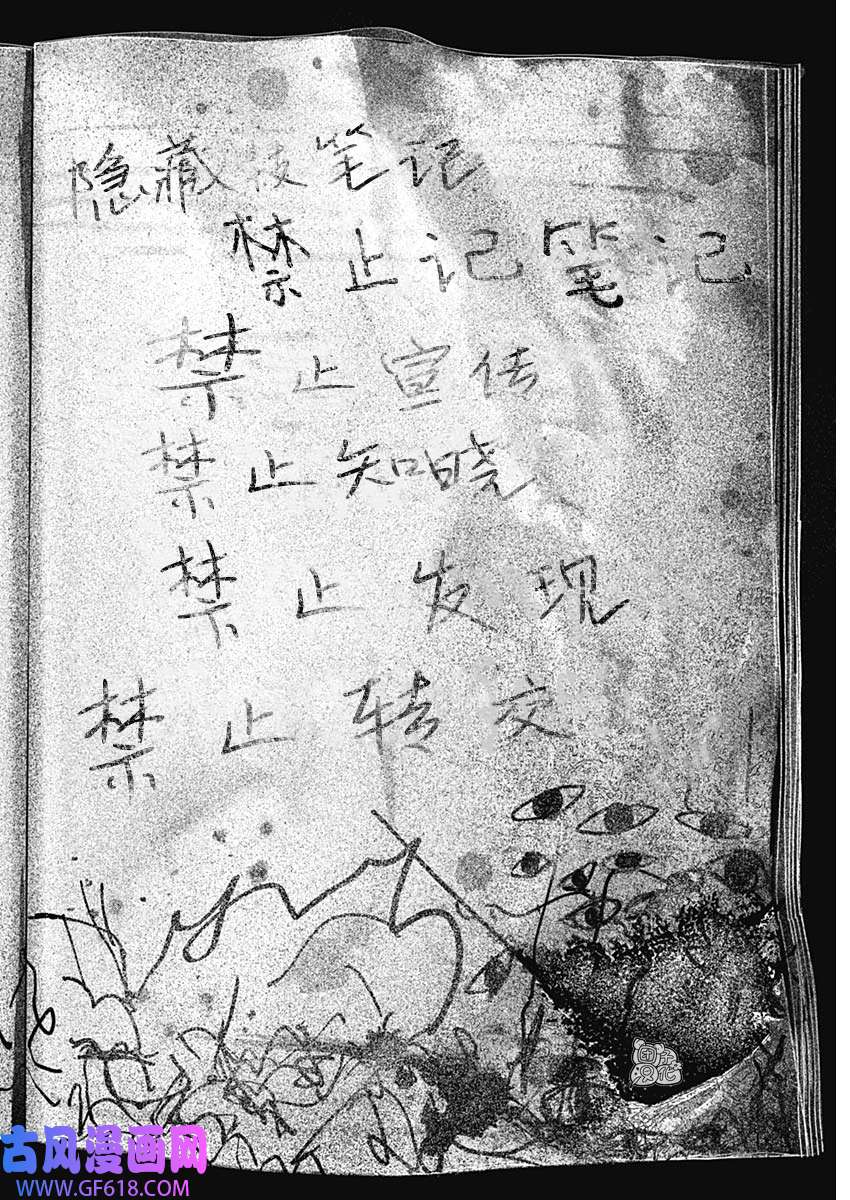 隐藏该笔记
禁止记笔记
禁止宣传
禁止知晓
禁止发现
禁止转交
古风漫画网
WWW.GF618.COM